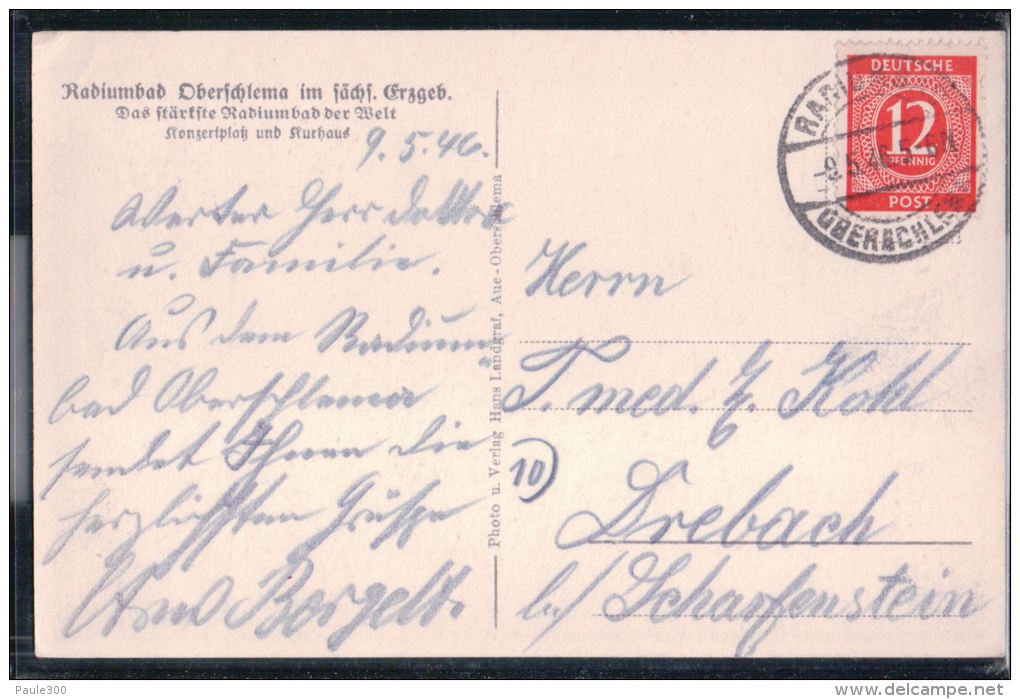 Radiumbad Oberschlema im sächs. Erzgeb.
Das stärkste Radiumbad der Welt
Konzertplatz und Kurhaus
9.5.46.
Werter Herr Doktor
u. Familie.
Aus dem Radium
bad Oberschlema
sendet Ihnen die
herzlichsten Grüße
Borgelt.
Photo u. Verlag Hans Landgraf, Aue-Oberschlema
DEUTSCHE
12
PFENNIG
POST
OBERSCHLEMA
Herrn
med. Kohl
10
Drebach
b./ Scharfenstein
Paule300
delcampe.net